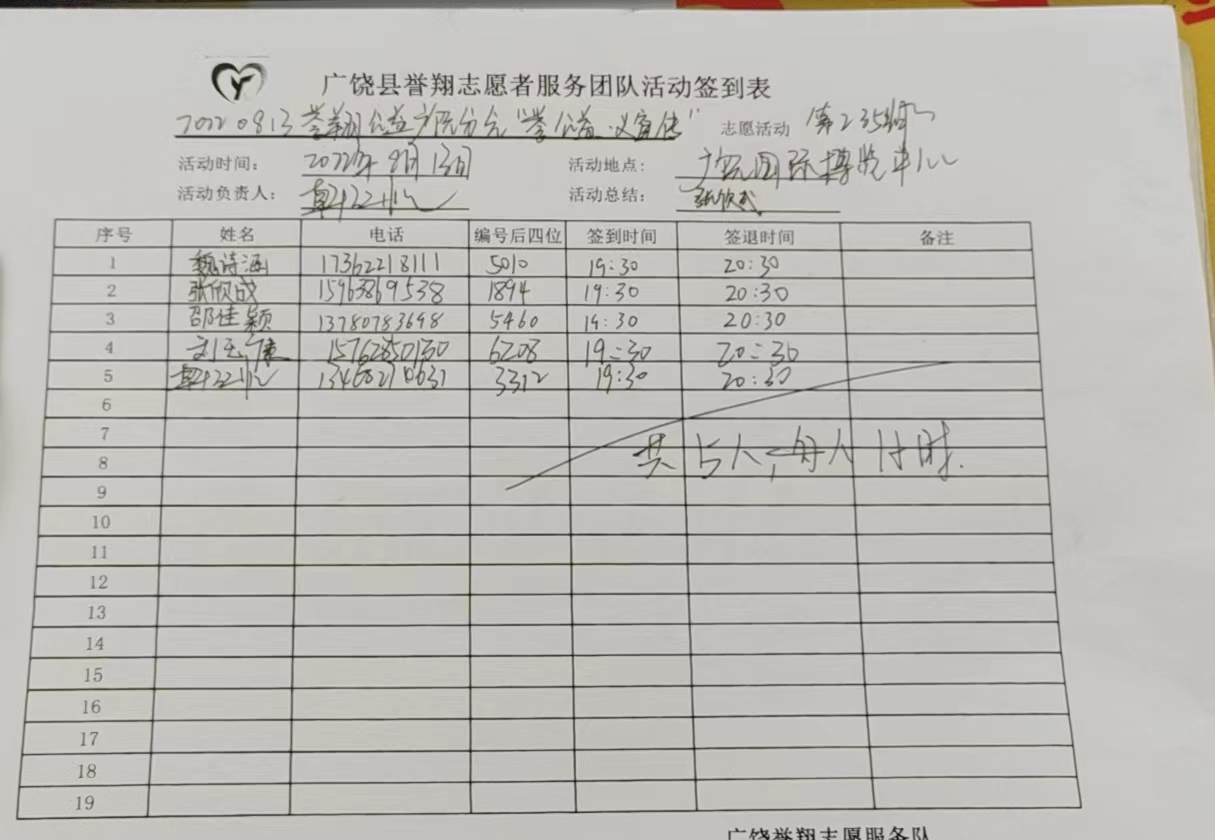 广饶县誉翔志愿者服务团队活动签到表
20220813 誉翔公益广饶分会"誉公益·义宣传" 志愿活动 第235期
活动时间: 2022年8月13日 活动地点: 广饶国际博览中心
活动负责人: 活动总结: 张欣成
序号 姓名 电话 编号后四位 签到时间 签退时间 备注
1 魏诗涵 17362218111 5010 19:30 20:30
2 张欣成 15963869538 1894 19:30 20:30
3 邵佳颖 13780783698 5460 19:30 20:30
4 刘玉康 15762850130 6208 19:30 20:30
5 3312 19:30 20:30
6
7
共5人,每人 1小时.
8
9
10
11
12
13
14
15
16
17
18
19
广饶誉翔志愿服务队